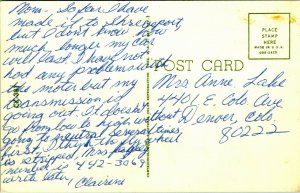 Mom - So far I have
made it to Shreveport,
but I don't know how
much longer my car
will last. I have not
had any problems with
the motor but my
transmission is
going out. It doesn't
go from low to high without
going to neutral several times
first. I think the fly wheel
is stripped. Mrs.
number is 442-3069
write later
Clairene
POST CARD
PLACE
STAMP
HERE
MADE IN U.S.A.
Mrs Anne Lake
4401 E. Colo. Ave
Denver, Colo.
80222